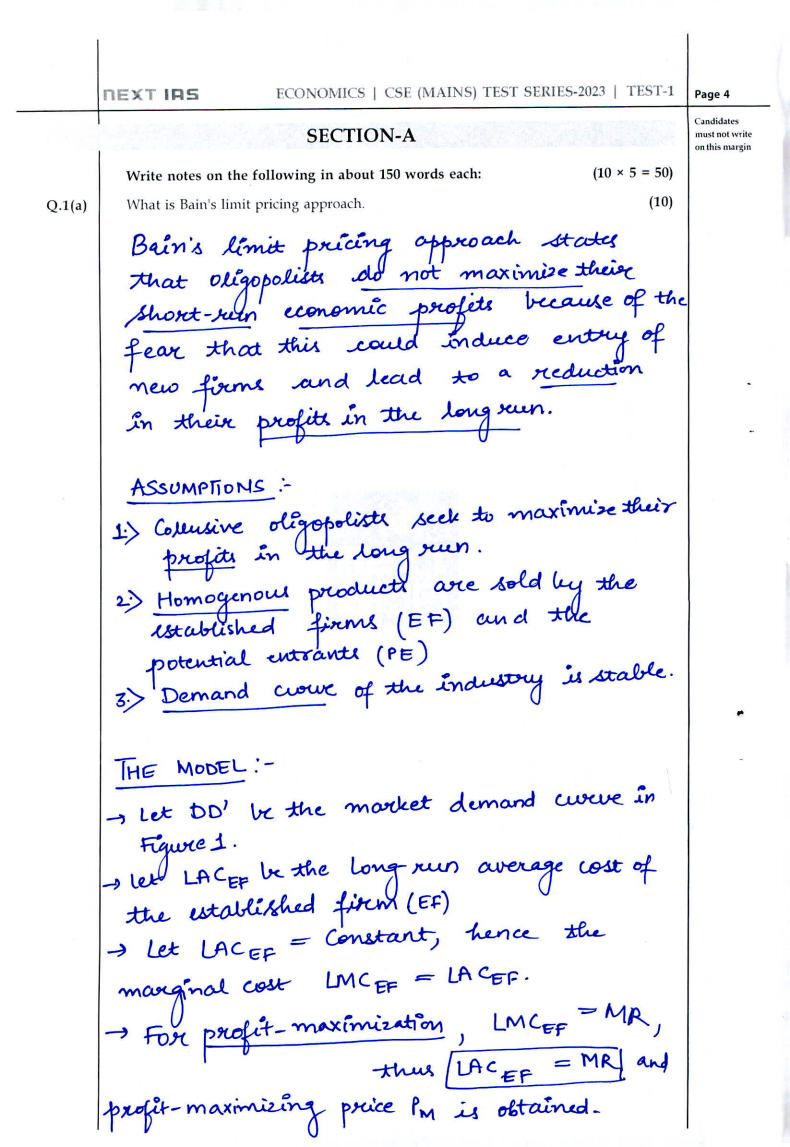 NEXT IAS ECONOMICS | CSE (MAINS) TEST SERIES-2023 | TEST-1 Page 4
Candidates
must not write
on this margin
SECTION-A
Write notes on the following in about 150 words each: (10 × 5 = 50)
Q.1(a) What is Bain's limit pricing approach. (10)
Bain's limit pricing approach states
that oligopolists do not maximize their
short-run economic profits because of the
fear that this could induce entry of
new firms and lead to a reduction
in their profits in the long run.
ASSUMPTIONS :-
1.> Collusive oligopolists seek to maximize their
profits in the long run.
2.> Homogenous products are sold by the
established firms (EF) and the
potential entrants (PE)
3.> Demand curve of the industry is stable.
THE MODEL :-
→ Let DD' be the market demand curve in
Figure 1.
→ let LAC_EF be the long-run average cost of
the established firm (EF)
→ Let LAC_EF = Constant, hence the
marginal cost LMC_EF = LAC_EF.
→ For profit-maximization, LMC_EF = MR,
thus LAC_EF = MR and
profit-maximizing price P_M is obtained.